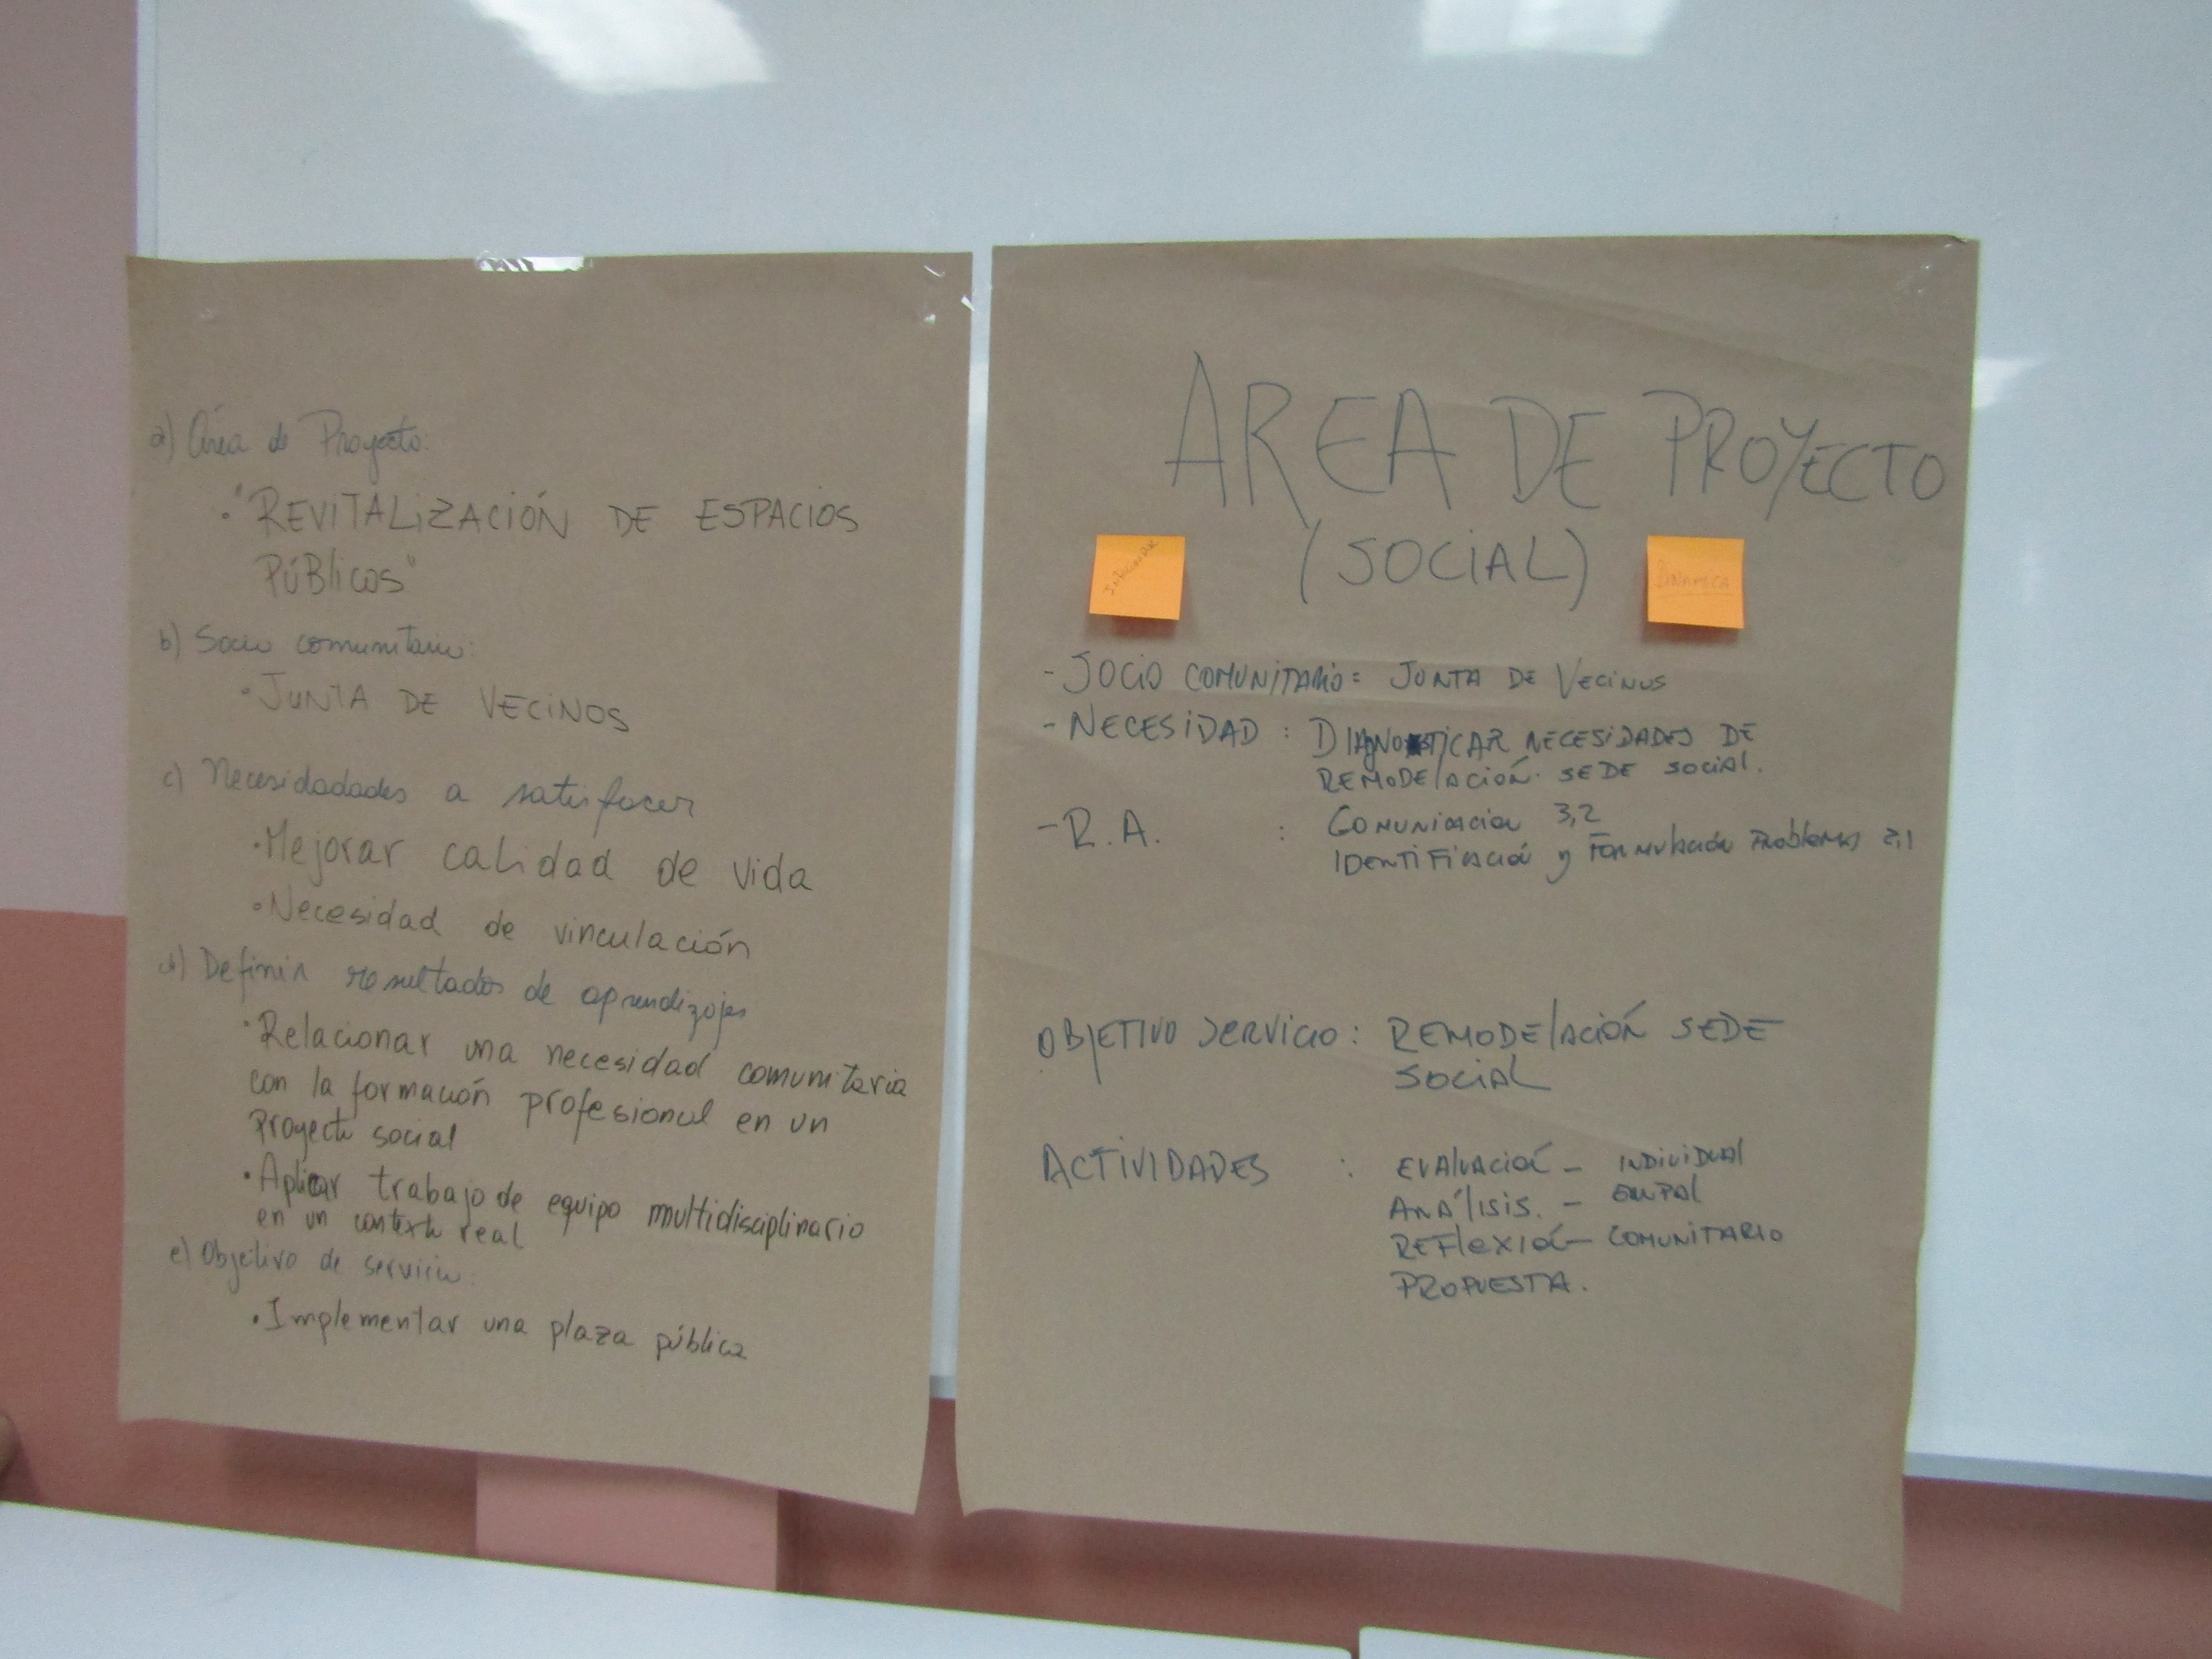 a) Área de Proyecto:
• "REVITALIZACIÓN DE ESPACIOS
PÚBlicos"
b) Socio comunitario:
• JUNTA DE VECINOS
c) Necesidadades a satisfacer
• Mejorar calidad de vida
• Necesidad de vinculación
d) Definir resultados de aprendizajes
• Relacionar una necesidad comunitaria
con la formación profesional en un
Proyecto social
• Aplicar trabajo de equipo multidisciplinario
en un contexto real
e) Objetivo de servicio:
• Implementar una plaza pública
AREA DE PROYECTO
(SOCIAL)
DINAMICA
- SOCIO COMUNITARIO = JUNTA DE VECINOS
- NECESIDAD : DIAGNOSTICAR NECESIDADES DE
REMODELACIÓN SEDE SOCIAL.
- R.A. : COMUNICACION 3,2
IDENTIFICACIÓN y FORMULACIÓN PROBLEMAS 2,1
OBJETIVO SERVICIO : REMODELACIÓN SEDE
SOCIAL
ACTIVIDADES : EVALUACIÓN - INDIVIDUAL
ANÁLISIS. -
REFLEXIÓN - COMUNITARIO
PROPUESTA.